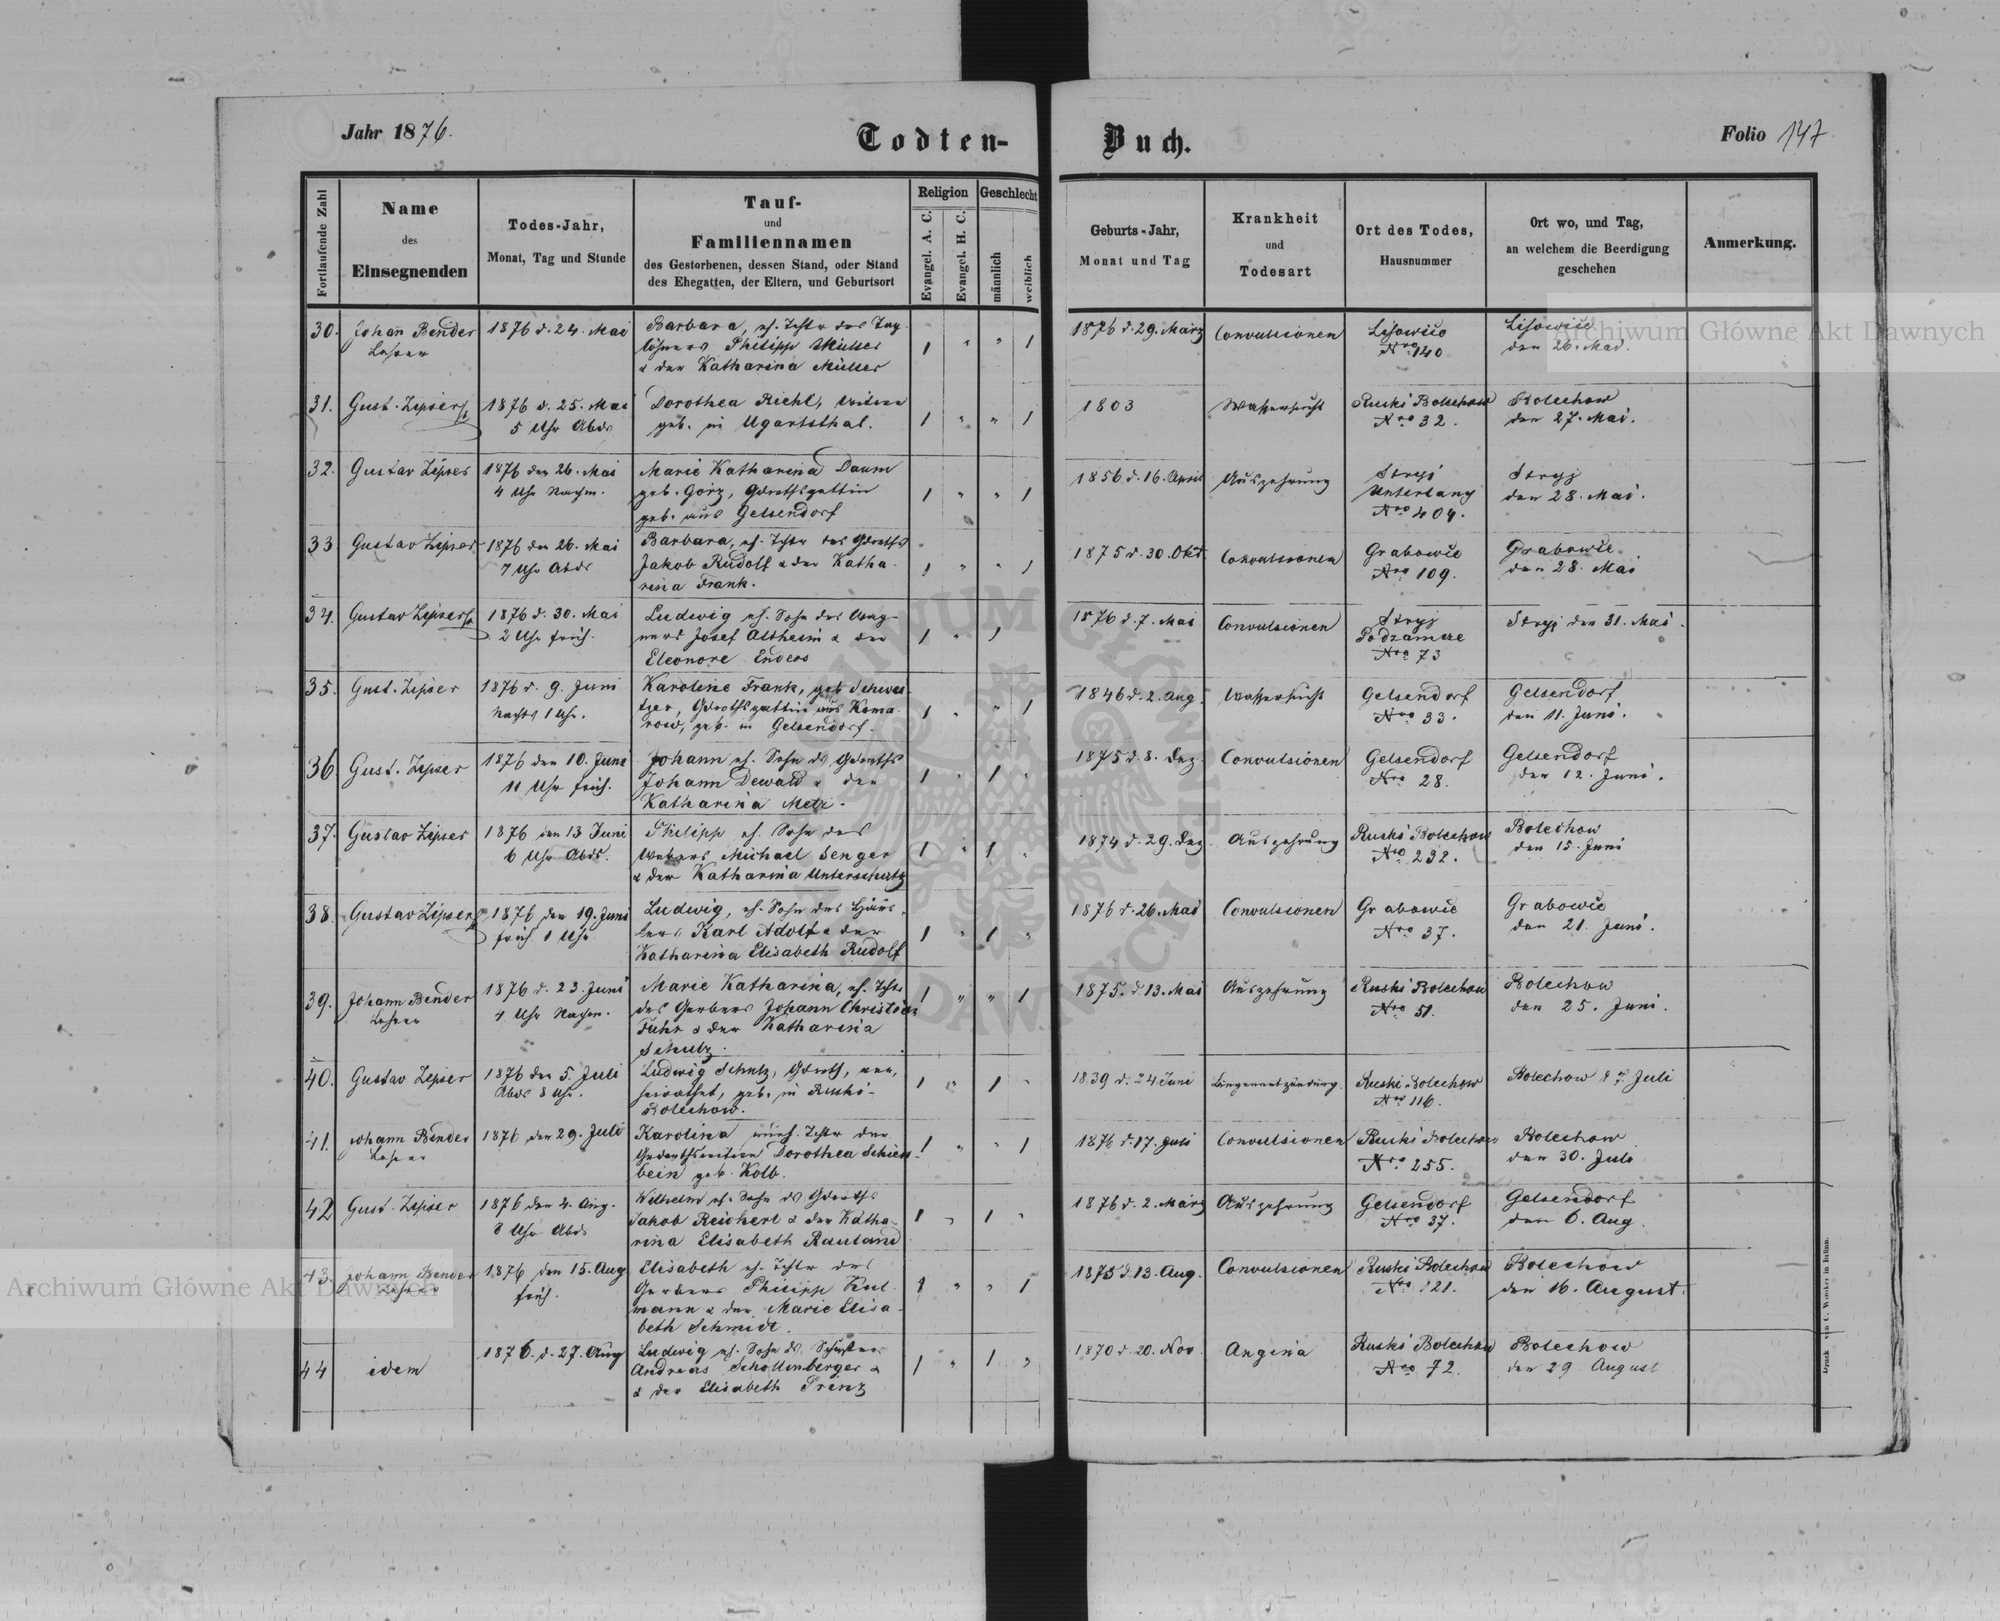 Jahr 1876.
Todten-Buch.
Folio 147
Fortlaufende Zahl
Name
des
Einsegnenden
Todes-Jahr,
Monat, Tag und Stunde
Tauf-
und
Familiennamen
des Gestorbenen, dessen Stand, oder Stand
des Ehegatten, der Eltern, und Geburtsort
Religion
Evangel. A. C.
Evangel. H. C.
Geschlecht
männlich
weiblich
Geburts-Jahr,
Monat und Tag
Krankheit
und
Todesart
Ort des Todes,
Hausnummer
Ort wo, und Tag,
an welchem die Beerdigung
geschehen
Anmerkung.
30. Johan Bender 1876 d. 24. Mai Barbara, eh. Tchtr des Tag- 1876 d. 29. März Convulsionen Lisowice Lisowice
Lehrer löhners Philipp Müller 1 " " 1 Nro 140 den 26. Mai.
& der Katharina Müller
31. Gust. Zipser 1876 d. 25. Mai Dorothea Riehl, Witwe 1803 Wassersucht Ruski Bolechow Bolechow
5 Uhr Abds geb. in Ugartsthal. 1 " " 1 Nro 32. den 27. Mai.
32. Gustav Zipser 1876 den 26. Mai Marie Katharina Daum 1856 d. 16. April Auszehrung Stryj Stryj
4 Uhr Nachm. geb. Görz, Gdrthsgattin 1 " " 1 Unterlany den 28. Mai.
geb. aus Gelsendorf Nro 404.
33. Gustav Zipser 1876 den 26. Mai Barbara, eh. Tchtr des Gdrths 1875 d. 30. Okt. Convulsionen Grabowie Grabowie
7 Uhr Abds Jakob Rudolf & der Katha- 1 " " 1 Nro 109. den 28. Mai
rina Frank.
34. Gustav Zipser 1876 d. 30. Mai Ludwig eh. Sohn des Wag- 1876 d. 7. Mai Convulsionen Stryj Stryj den 31. Mai.
2 Uhr früh. ners Josef Altheim & der 1 " 1 Podzamcze
Eleonore Enders Nro 73
35. Gust. Zipser 1876 d. 9. Juni Karoline Frank, geb Schwei- 1846 d. 2. Aug. Wassersucht Gelsendorf Gelsendorf
Nachts 1 Uhr. tzer, Gdrthsgattin aus Koma- 1 " " 1 Nro 33. den 11. Juni.
row, geb. in Gelsendorf.
36 Gust. Zipser 1876 den 10. Juni Johann eh. Sohn ds Gdrths 1875 d. 8. Dez. Convulsionen Gelsendorf Gelsendorf
11 Uhr früh. Johann Dewald & der 1 " 1 " Nro 28. den 12. Juni.
Katharina Metz.
37. Gustav Zipser 1876 den 13 Juni Philipp eh. Sohn des 1874 d. 29. Dez. Auszehrung Ruski Bolechow Bolechow
6 Uhr Abds. Webers Michael Senger 1 " 1 " Nro 232. den 15. Juni
& der Katharina Unterschütz
38. Gustav Zipser 1876 den 19. Juni Ludwig, eh. Sohn des Häus- 1876 d. 26. Mai Convulsionen Grabowie Grabowie
früh 1 Uhr lers Karl Adolf & der 1 " 1 " Nro 37. den 21. Juni.
Katharina Elisabeth Rudolf
39. Johann Bender 1876 d. 23. Juni Marie Katharina, eh. Tchtr 1875. d 13. Mai Auszehrung Ruski Bolechow Bolechow
Lehrer 4 Uhr Nachm. des Gerbers Johann Christian 1 " " 1 Nro 51. den 25. Juni.
Fuhr & der Katharina
Schulz.
40. Gustav Zipser 1876 den 5. Juli Ludwig Schutz, Gdrth, ver- 1839 d. 24 Juni Lungenentzündung. Ruski-Bolechow Bolechow d 7. Juli
Abds 8 Uhr. heirathet, geb. in Ruski- 1 " 1 " Nro 116.
Bolechow.
41. Johann Bender 1876 den 29. Juli Karolina uneh. Tchtr der 1876 d. 17. Juli Convulsionen Ruski Bolechow Bolechow
Lehrer Dorothea Schien- 1 " " 1 Nro 255. den 30. Juli
bein geb. Kolb.
42 Gust. Zipser 1876 den 4. Aug. Wilhelm eh. Sohn ds Gdrths 1876 d. 2. März Auszehrung Gelsendorf Gelsendorf
8 Uhr Abds Jakob Reichert & der Katha- 1 " 1 " Nro 37. den 6. Aug.
rina Elisabeth Rauland
43. Johann Bender 1876 den 15. Aug Elisabeth eh. Tchtr des 1875 d. 13. Aug. Convulsionen Ruski Bolechow Bolechow
Lehrer früh. Gerbers Philipp Kul- 1 " " 1 Nro 121. den 16. August.
mann & der Marie Elisa-
beth Schmidt.
44 idem 1876. d. 27. Aug Ludwig eh. Sohn ds Schusters 1870 d. 20. Nov. Angina Ruski Bolechow Bolechow
Andreas Schollenberger & 1 " 1 " Nro 72. den 29 August
& der Elisabeth Prinz
Archiwum Główne Akt Dawnych
Archiwum Główne Akt Dawnych
ARCHIWUM GŁÓWNE AKT DAWNYCH